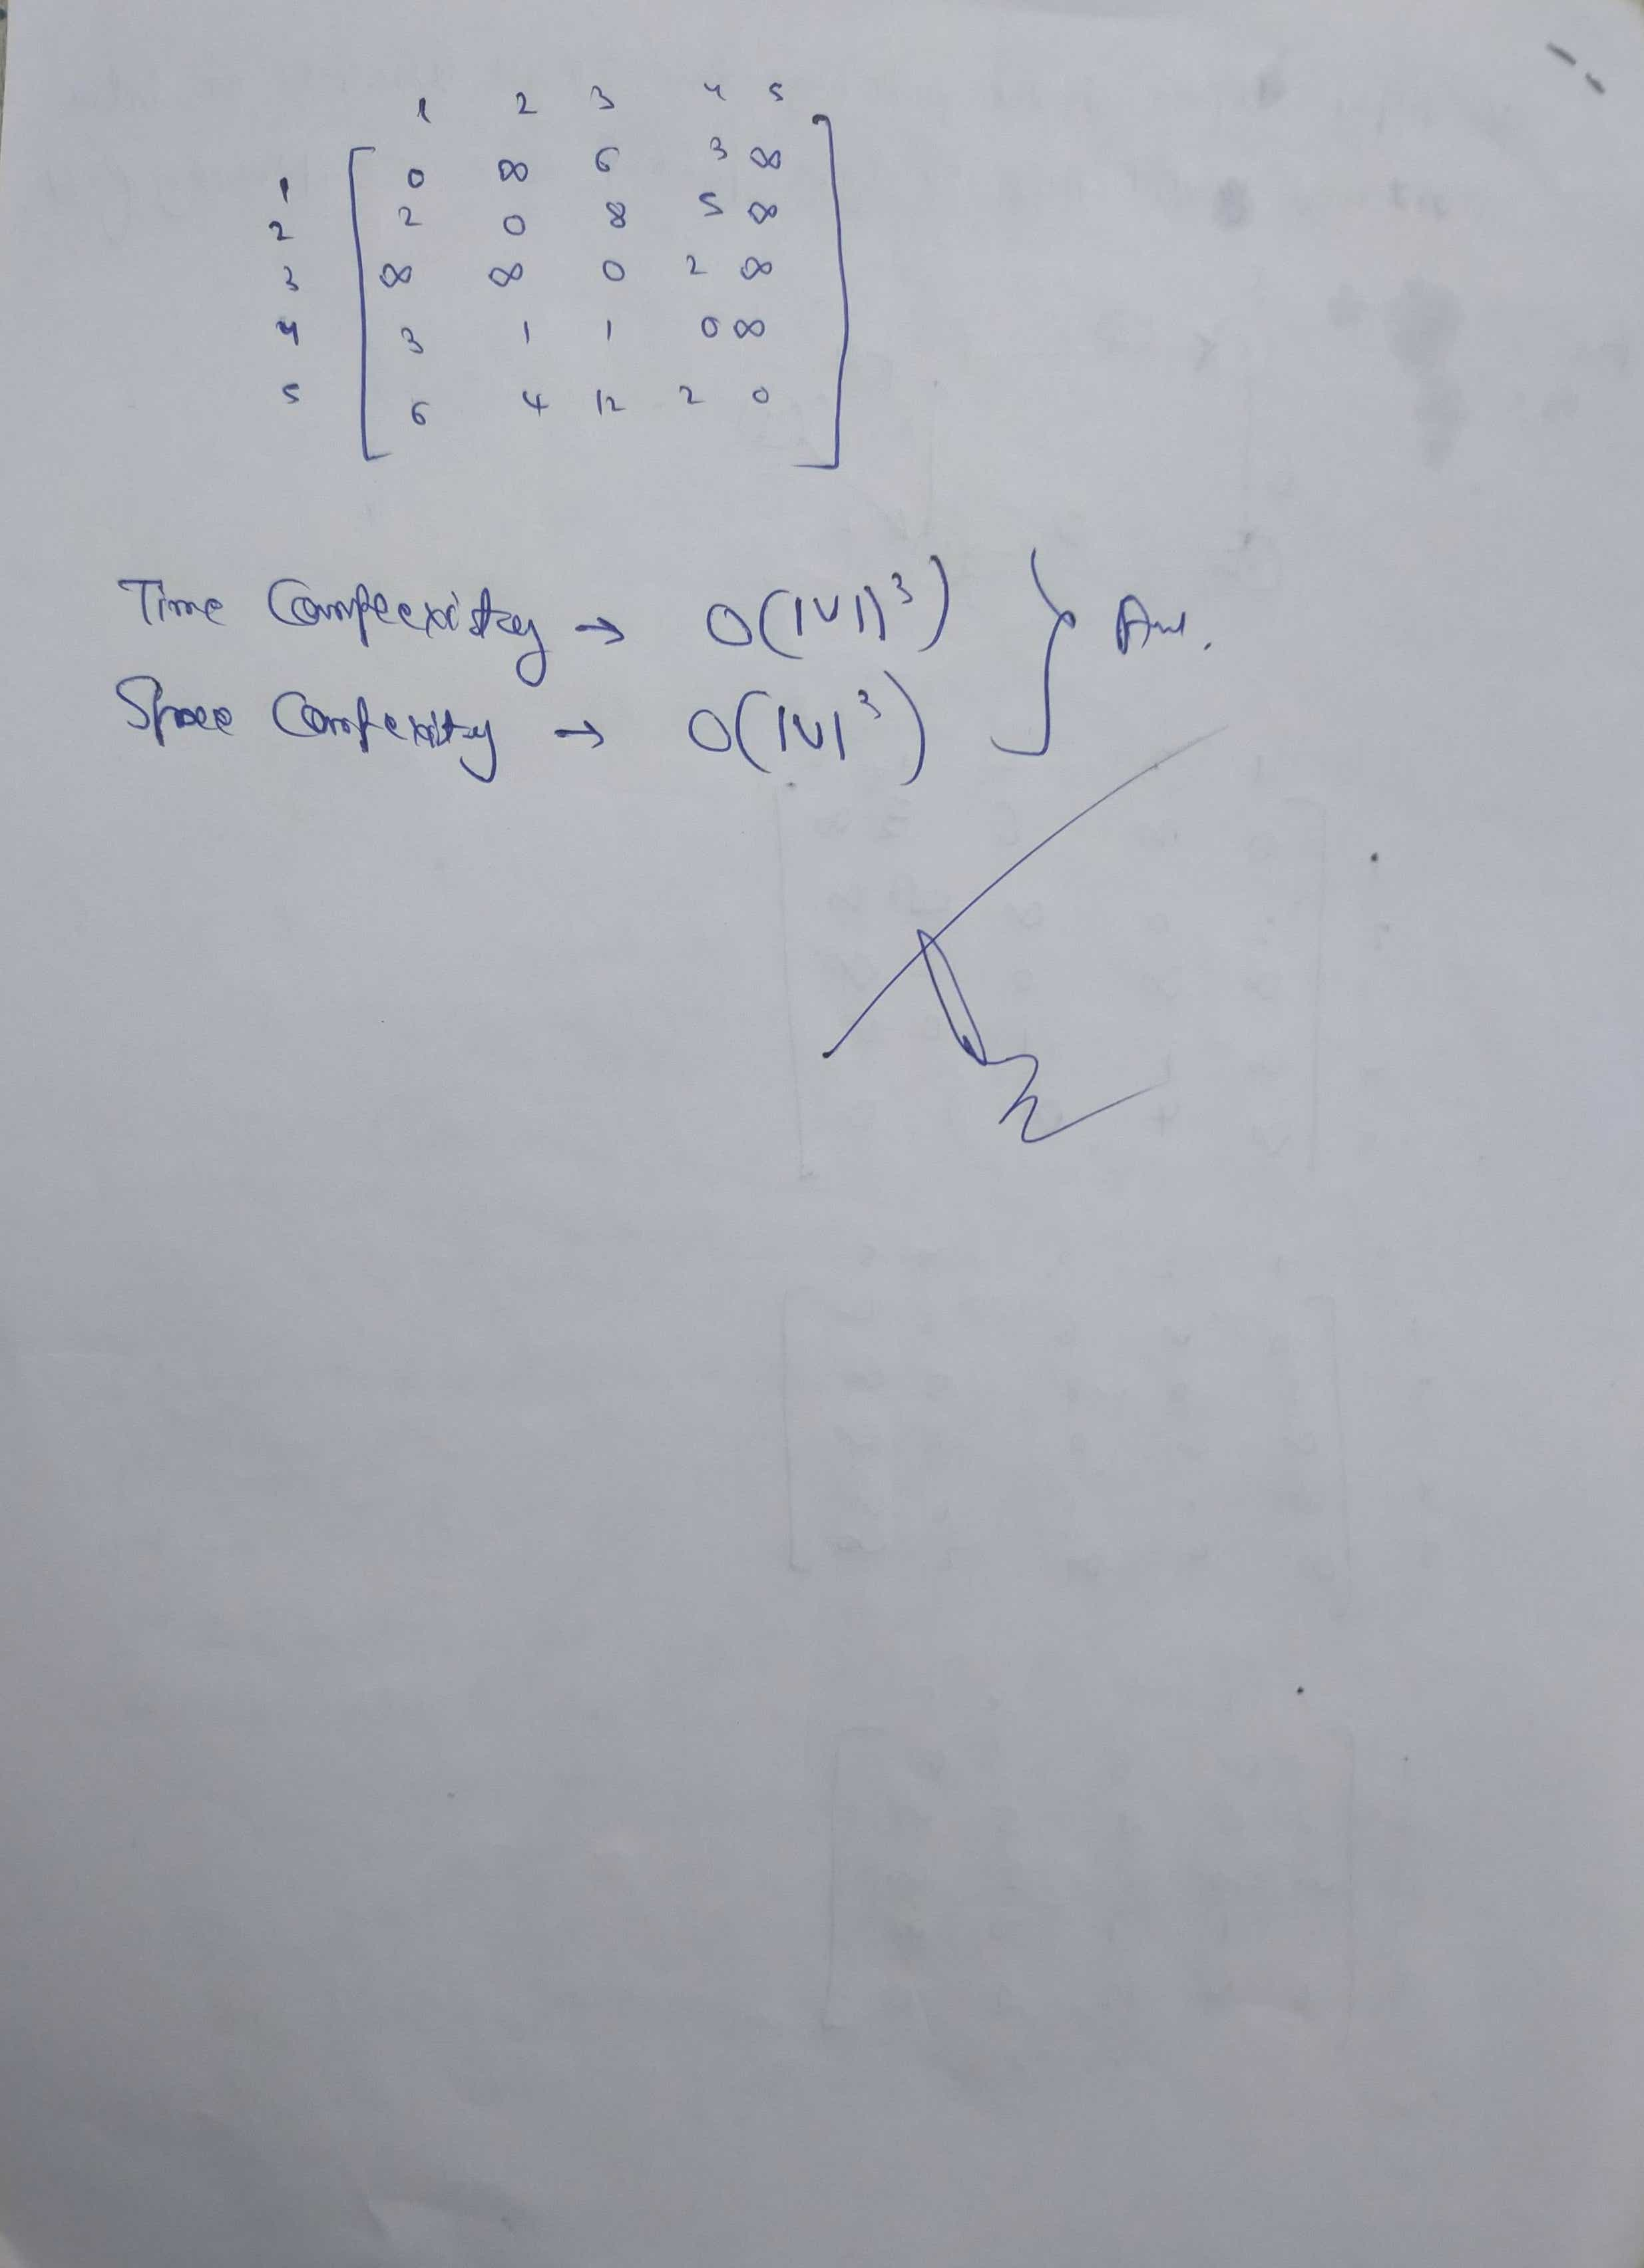 1 2 3 4 5
1 0 ∞ 6 3 ∞
2 2 0 8 5 ∞
3 ∞ ∞ 0 2 ∞
4 3 1 1 0 ∞
5 6 4 12 2 0
Time Complexity → O(|V|)³)
Space Complexity → O(|V|³)
Ans.